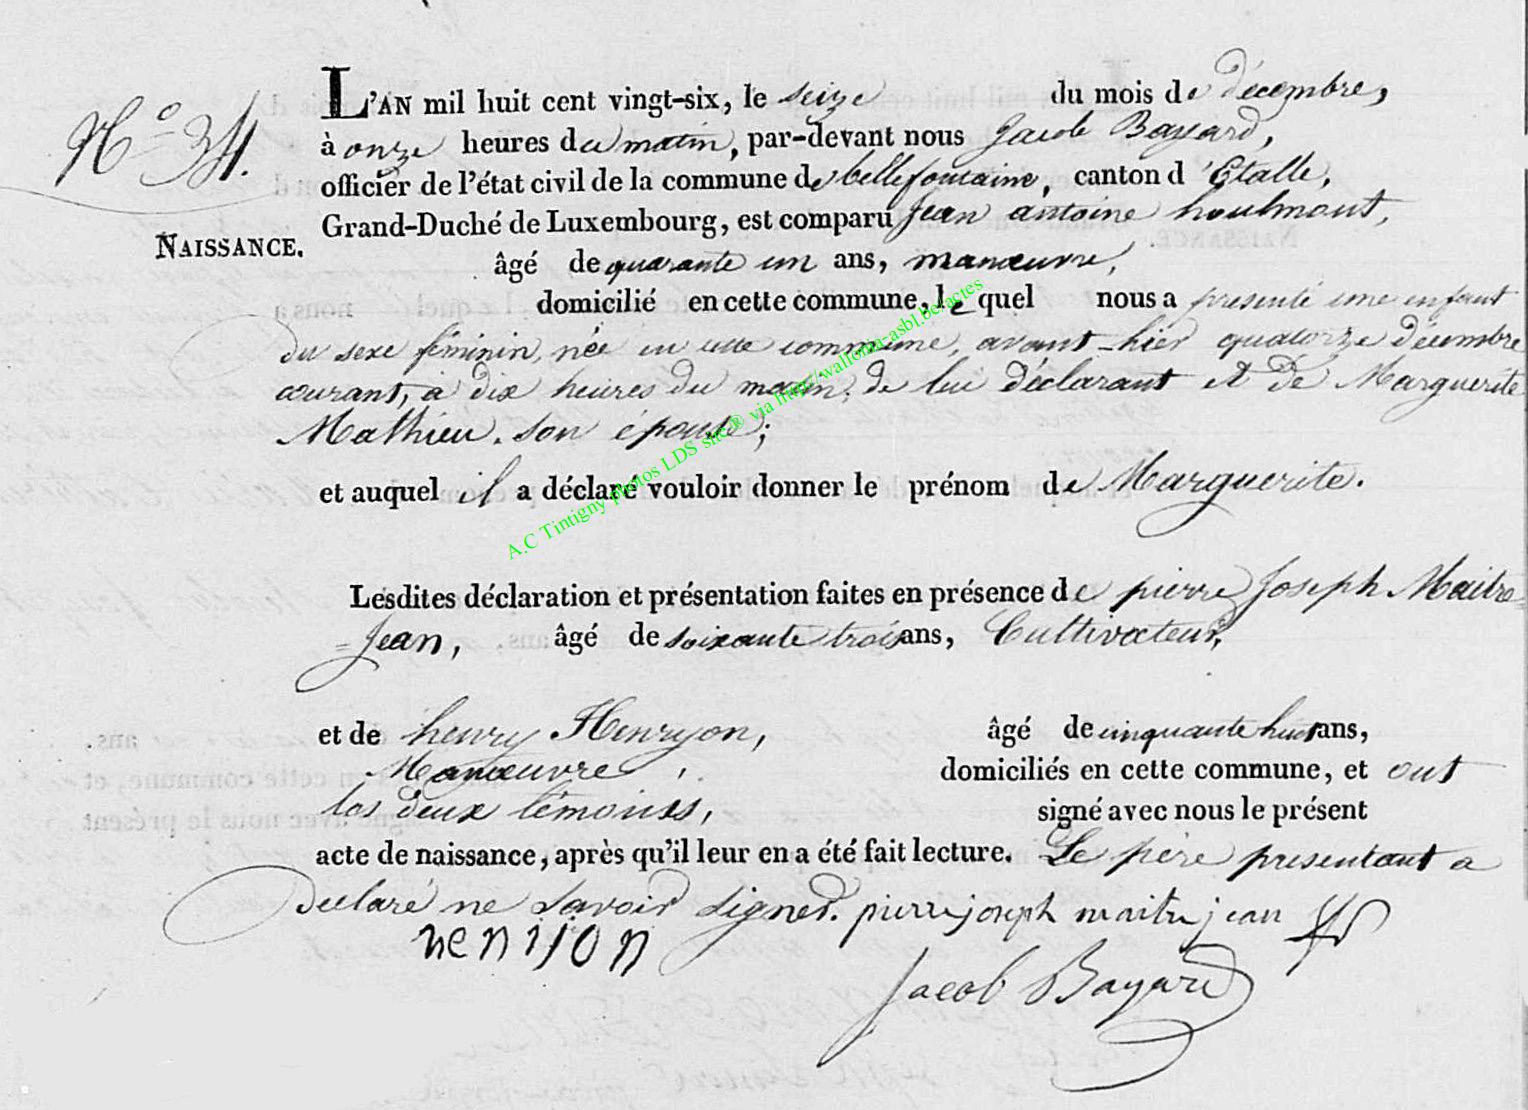 N.° 34.
NAISSANCE.
L'AN mil huit cent vingt-six, le seize du mois de décembre,
à onze heures du matin, par-devant nous Jacob Bayard,
officier de l'état civil de la commune de bellefontaine, canton d'Etalle,
Grand-Duché de Luxembourg, est comparu Jean antoine houlmont,
âgé de quarante un ans, manœuvre,
domicilié en cette commune, le quel nous a presenté une enfant
du sexe féminin, née en cette commune, avant-hier quatorze décembre
courant, à dix heures du matin, de lui déclarant et de Marguerite
Mathieu, son épouse;
et auquel il a déclaré vouloir donner le prénom de Marguerite.
Lesdites déclaration et présentation faites en présence de pierre Joseph Maitre=
=Jean, âgé de soixante trois ans, Cultivateur,
et de henry Henryon, âgé de cinquante huit ans,
Manœuvre, domiciliés en cette commune, et ont
les deux témoins, signé avec nous le présent
acte de naissance, après qu'il leur en a été fait lecture. Le père presentant a
declaré ne savoir signer. pierre joseph maitre jean
henijon
Jacob Bayard
A.C Tintigny photos LDS site® via http://wallonia-asbl.be/actes